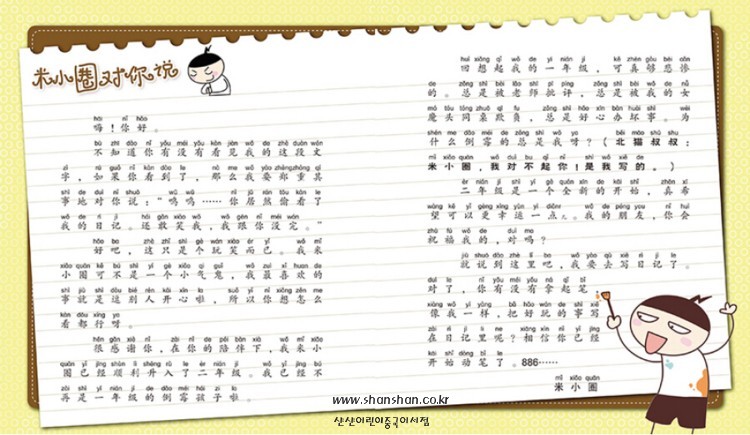 米小圈对你说
hāi nǐ hǎo
嗨！你好。
bù zhī dào nǐ yǒu méi yǒu kàn jiàn wǒ de zhè duàn wén
不知道你有没有看见我的这段文
zì rú guǒ nǐ kàn dào le nà me wǒ yào zhèng zhòng qí
字，如果你看到了，那么我要郑重其
shì de duì nǐ shuō wū wū nǐ jū rán tōu kàn le
事地对你说：“呜呜……你居然偷看了
wǒ de rì jì hái gǎn xiào wǒ wǒ gēn nǐ méi wán
我的日记。还敢笑我，我跟你没完。”
hǎo ba zhè zhǐ shì gè wán xiào ér yǐ wǒ mǐ
好吧，这只是个玩笑而已。我米
xiǎo quān kě bú shì yí gè xiǎo qì guǐ wǒ zuì xǐ huan de
小圈可不是一个小气鬼，我最喜欢的
shì jiù shì dòu bié rén kāi xīn la suǒ yǐ nǐ xiǎng zěn me
事就是逗别人开心啦，所以你想怎么
kàn dōu xíng ya
看都行呀。
hěn gǎn xiè nǐ zài nǐ de péi bàn xià wǒ mǐ xiǎo
很感谢你，在你的陪伴下，我米小
quān yǐ jīng shùn lì shēng rù le èr nián jí wǒ yǐ jīng bú
圈已经顺利升入了二年级。我已经不
zài shì yì nián jí de dǎo méi hái zi la
再是一年级的倒霉孩子啦。
huí xiǎng qǐ wǒ de yì nián jí kě zhēn gòu bēi cǎn
回想起我的一年级，可真够悲惨
de zǒng shì bèi lǎo shī pī píng zǒng shì bèi wǒ de nǚ
的。总是被老师批评，总是被我的女
mó tóu tóng zhuō qī fu zǒng shì hǎo xīn bàn huài shì wèi
魔头同桌欺负，总是好心办坏事。为
shén me dǎo méi de zǒng shì wǒ ya běi māo shū shu
什么倒霉的总是我呀？（北猫叔叔：
mǐ xiǎo quān wǒ duì bu qǐ nǐ shì wǒ xiě de
米小圈，我对不起你！是我写的。）
èr nián jí shì yí gè quán xīn de kāi shǐ zhēn xī
二年级是一个全新的开始，真希
wàng kě yǐ gèng xìng yùn yì diǎnr wǒ de péng you nǐ huì
望可以更幸运一点儿。我的朋友，你会
zhù fú wǒ de duì ma
祝福我的，对吗？
jiù shuō dào zhè lǐ ba wǒ yào qù xiě rì jì le
就说到这里吧，我要去写日记了。
duì le nǐ yǒu méi yǒu ná qǐ bǐ
对了，你有没有拿起笔，
xiàng wǒ yí yàng bǎ hǎo wán de shì xiě
像我一样，把好玩的事写
zài rì jì lǐ ne xiāng xìn nǐ yǐ jīng
在日记里呢？相信你已经
kāi shǐ dòng bǐ le
开始动笔了。886……
mǐ xiǎo quān
米小圈
www.shanshan.co.kr
산산어린이중국어서점